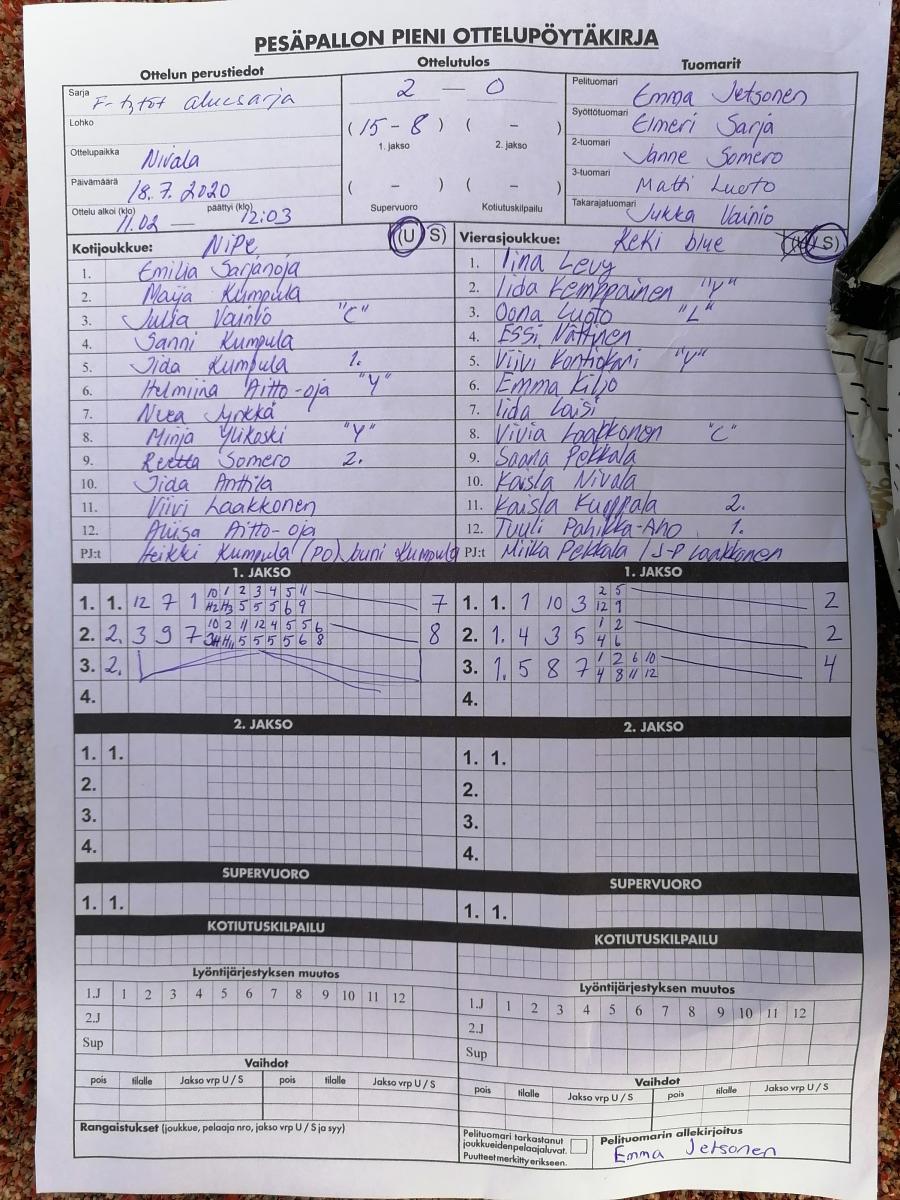 PESÄPALLON PIENI OTTELUPÖYTÄKIRJA
Ottelun perustiedot
Ottelutulos
Tuomarit
Sarja F-tytöt aluesarja
2 — 0
Pelituomari Emma Jetsonen
Lohko
(15 - 8) ( - )
Syöttötuomari Elmeri Sarja
1. jakso 2. jakso
Ottelupaikka Nivala
2-tuomari Janne Somero
Päivämäärä 18.7.2020
( - ) ( - )
3-tuomari Matti Luoto
Ottelu alkoi (klo) 11.02 — päättyi (klo) 12:03
Supervuoro Kotiutuskilpailu
Takarajatuomari Jukka Vainio
Kotijoukkue: NiPe (U S)
1. Emilia Sarjanoja
2. Maija Kumpula
3. Julia Vainio "C"
4. Sanni Kumpula
5. Iida Kumpula 1.
6. Helmiina Aitto-oja "Y"
7. Neea Jyrkkä
8. Minja Ylikoski "Y"
9. Reetta Somero 2.
10. Iida Anttila
11. Viivi Laakkonen
12. Aliisa Aitto-oja
PJ:t Heikki Kumpula (PO) Juni Kumpula
Vierasjoukkue: KeKi blue (U S)
1. Iina Levy
2. Iida Kemppainen "Y"
3. Oona Luoto "L"
4. Essi Nättinen
5. Viivi Kontiokari "Y"
6. Emma Kiljo
7. Iida Loisi
8. Vivia Laakkonen "C"
9. Saana Pekkala
10. Kaisla Nivala
11. Kaisla Kumppala 2.
12. Tuuli Pahikka-Aho 1.
PJ:t Miika Pekkala / J-P Laakkonen
1. JAKSO
10 1 2 3 4 5 11
1. 1. 12 7 1 H2 H3 5 5 5 6 9 7
10 2 11 12 4 5 5 6
2. 2. 3 9 7 5 5 5 5 6 8 8
3. 2.
4.
1. JAKSO
2 5
1. 1. 1 10 3 12 9 2
1 2
2. 1. 4 3 5 4 6 2
1 2 6 10
3. 1. 5 8 7 4 8 11 12 4
4.
2. JAKSO
1. 1.
2.
3.
4.
2. JAKSO
1. 1.
2.
3.
4.
SUPERVUORO
1. 1.
SUPERVUORO
1. 1.
KOTIUTUSKILPAILU
KOTIUTUSKILPAILU
Lyöntijärjestyksen muutos
1.J 1 2 3 4 5 6 7 8 9 10 11 12
2.J
Sup
Lyöntijärjestyksen muutos
1.J 1 2 3 4 5 6 7 8 9 10 11 12
2.J
Sup
Vaihdot
pois tilalle Jakso vrp U / S pois tilalle Jakso vrp U / S
Vaihdot
pois tilalle Jakso vrp U / S pois tilalle Jakso vrp U / S
Rangaistukset (joukkue, pelaaja nro, jakso vrp U / S ja syy)
Pelituomari tarkastanut
joukkueiden pelaajaluvat.
Puutteet merkitty erikseen.
Pelituomarin allekirjoitus
Emma Jetsonen